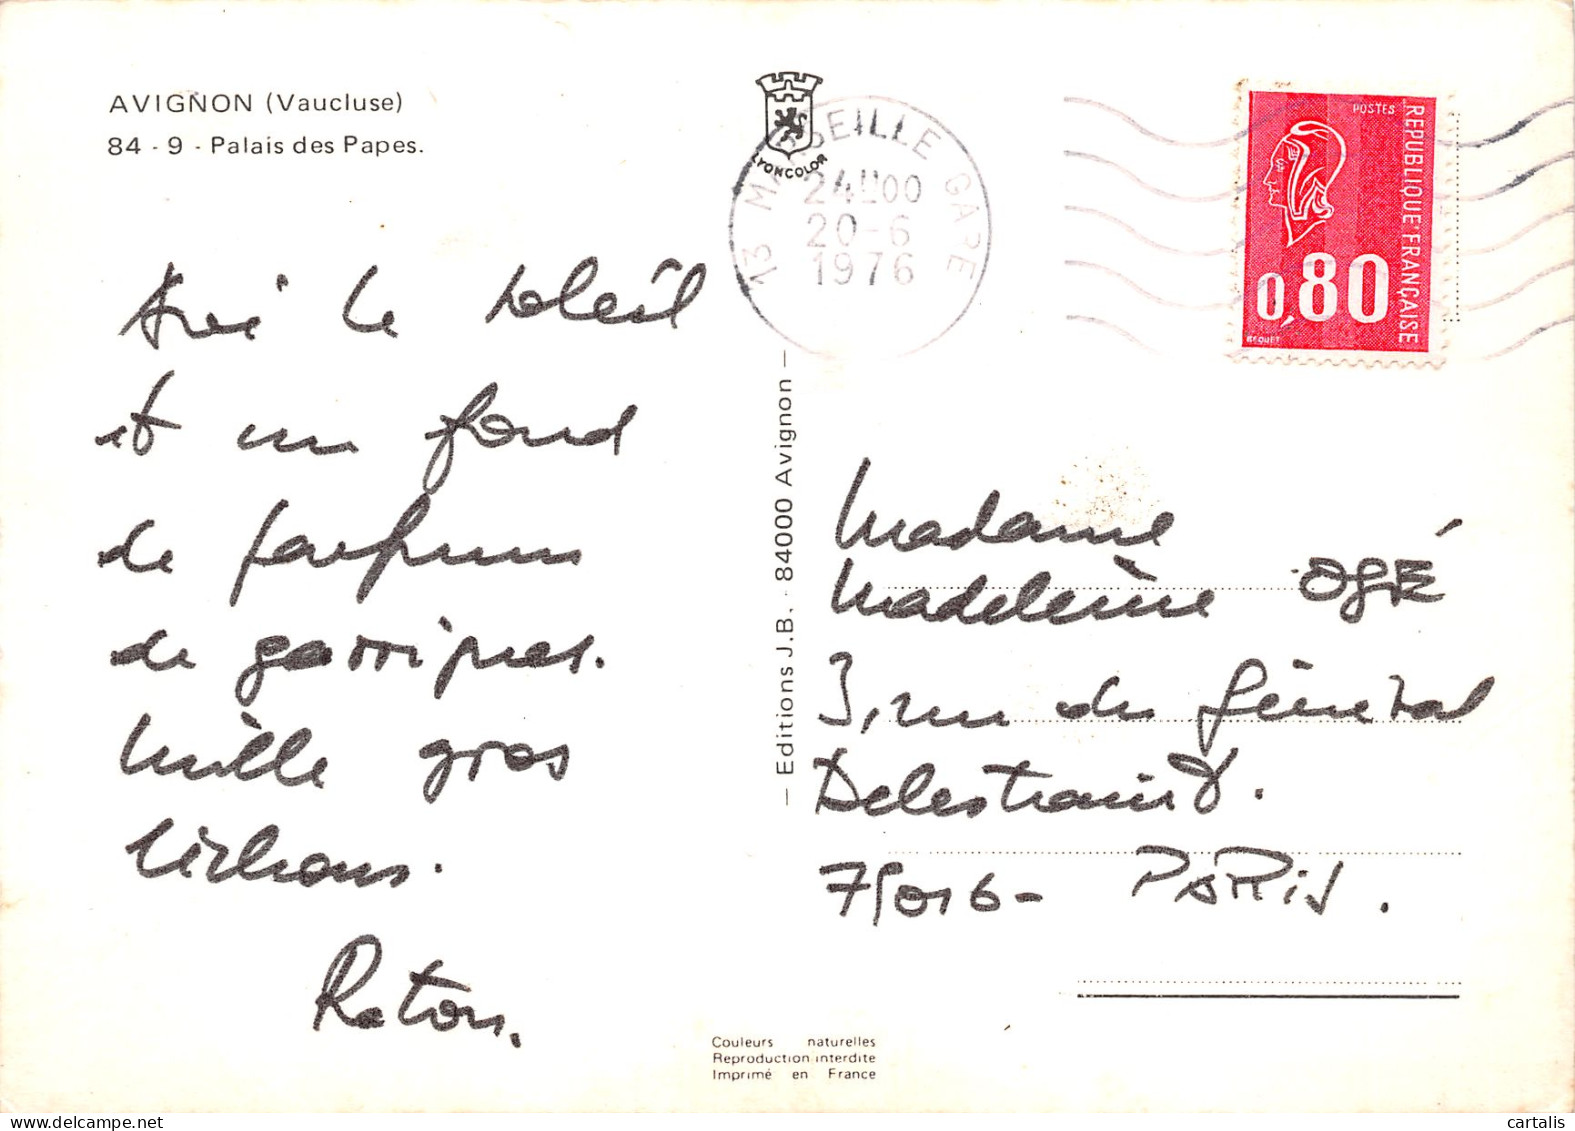 AVIGNON (Vaucluse)
84 - 9 - Palais des Papes.
LYONCOLOR
13 MARSEILLE GARE
24H00
20-6
1976
POSTES
REPUBLIQUE FRANÇAISE
0,80
BEQUET
le soleil
et un fond
de parfums
de garrigues.
Mille gros
Raton.
— Editions J.B. - 84000 Avignon —
Madame
Madeleine OGÉ
3, rue du Général
Delestraint.
75016 - PARIS.
Couleurs naturelles
Reproduction interdite
Imprimé en France
cartalis
delcampe.net